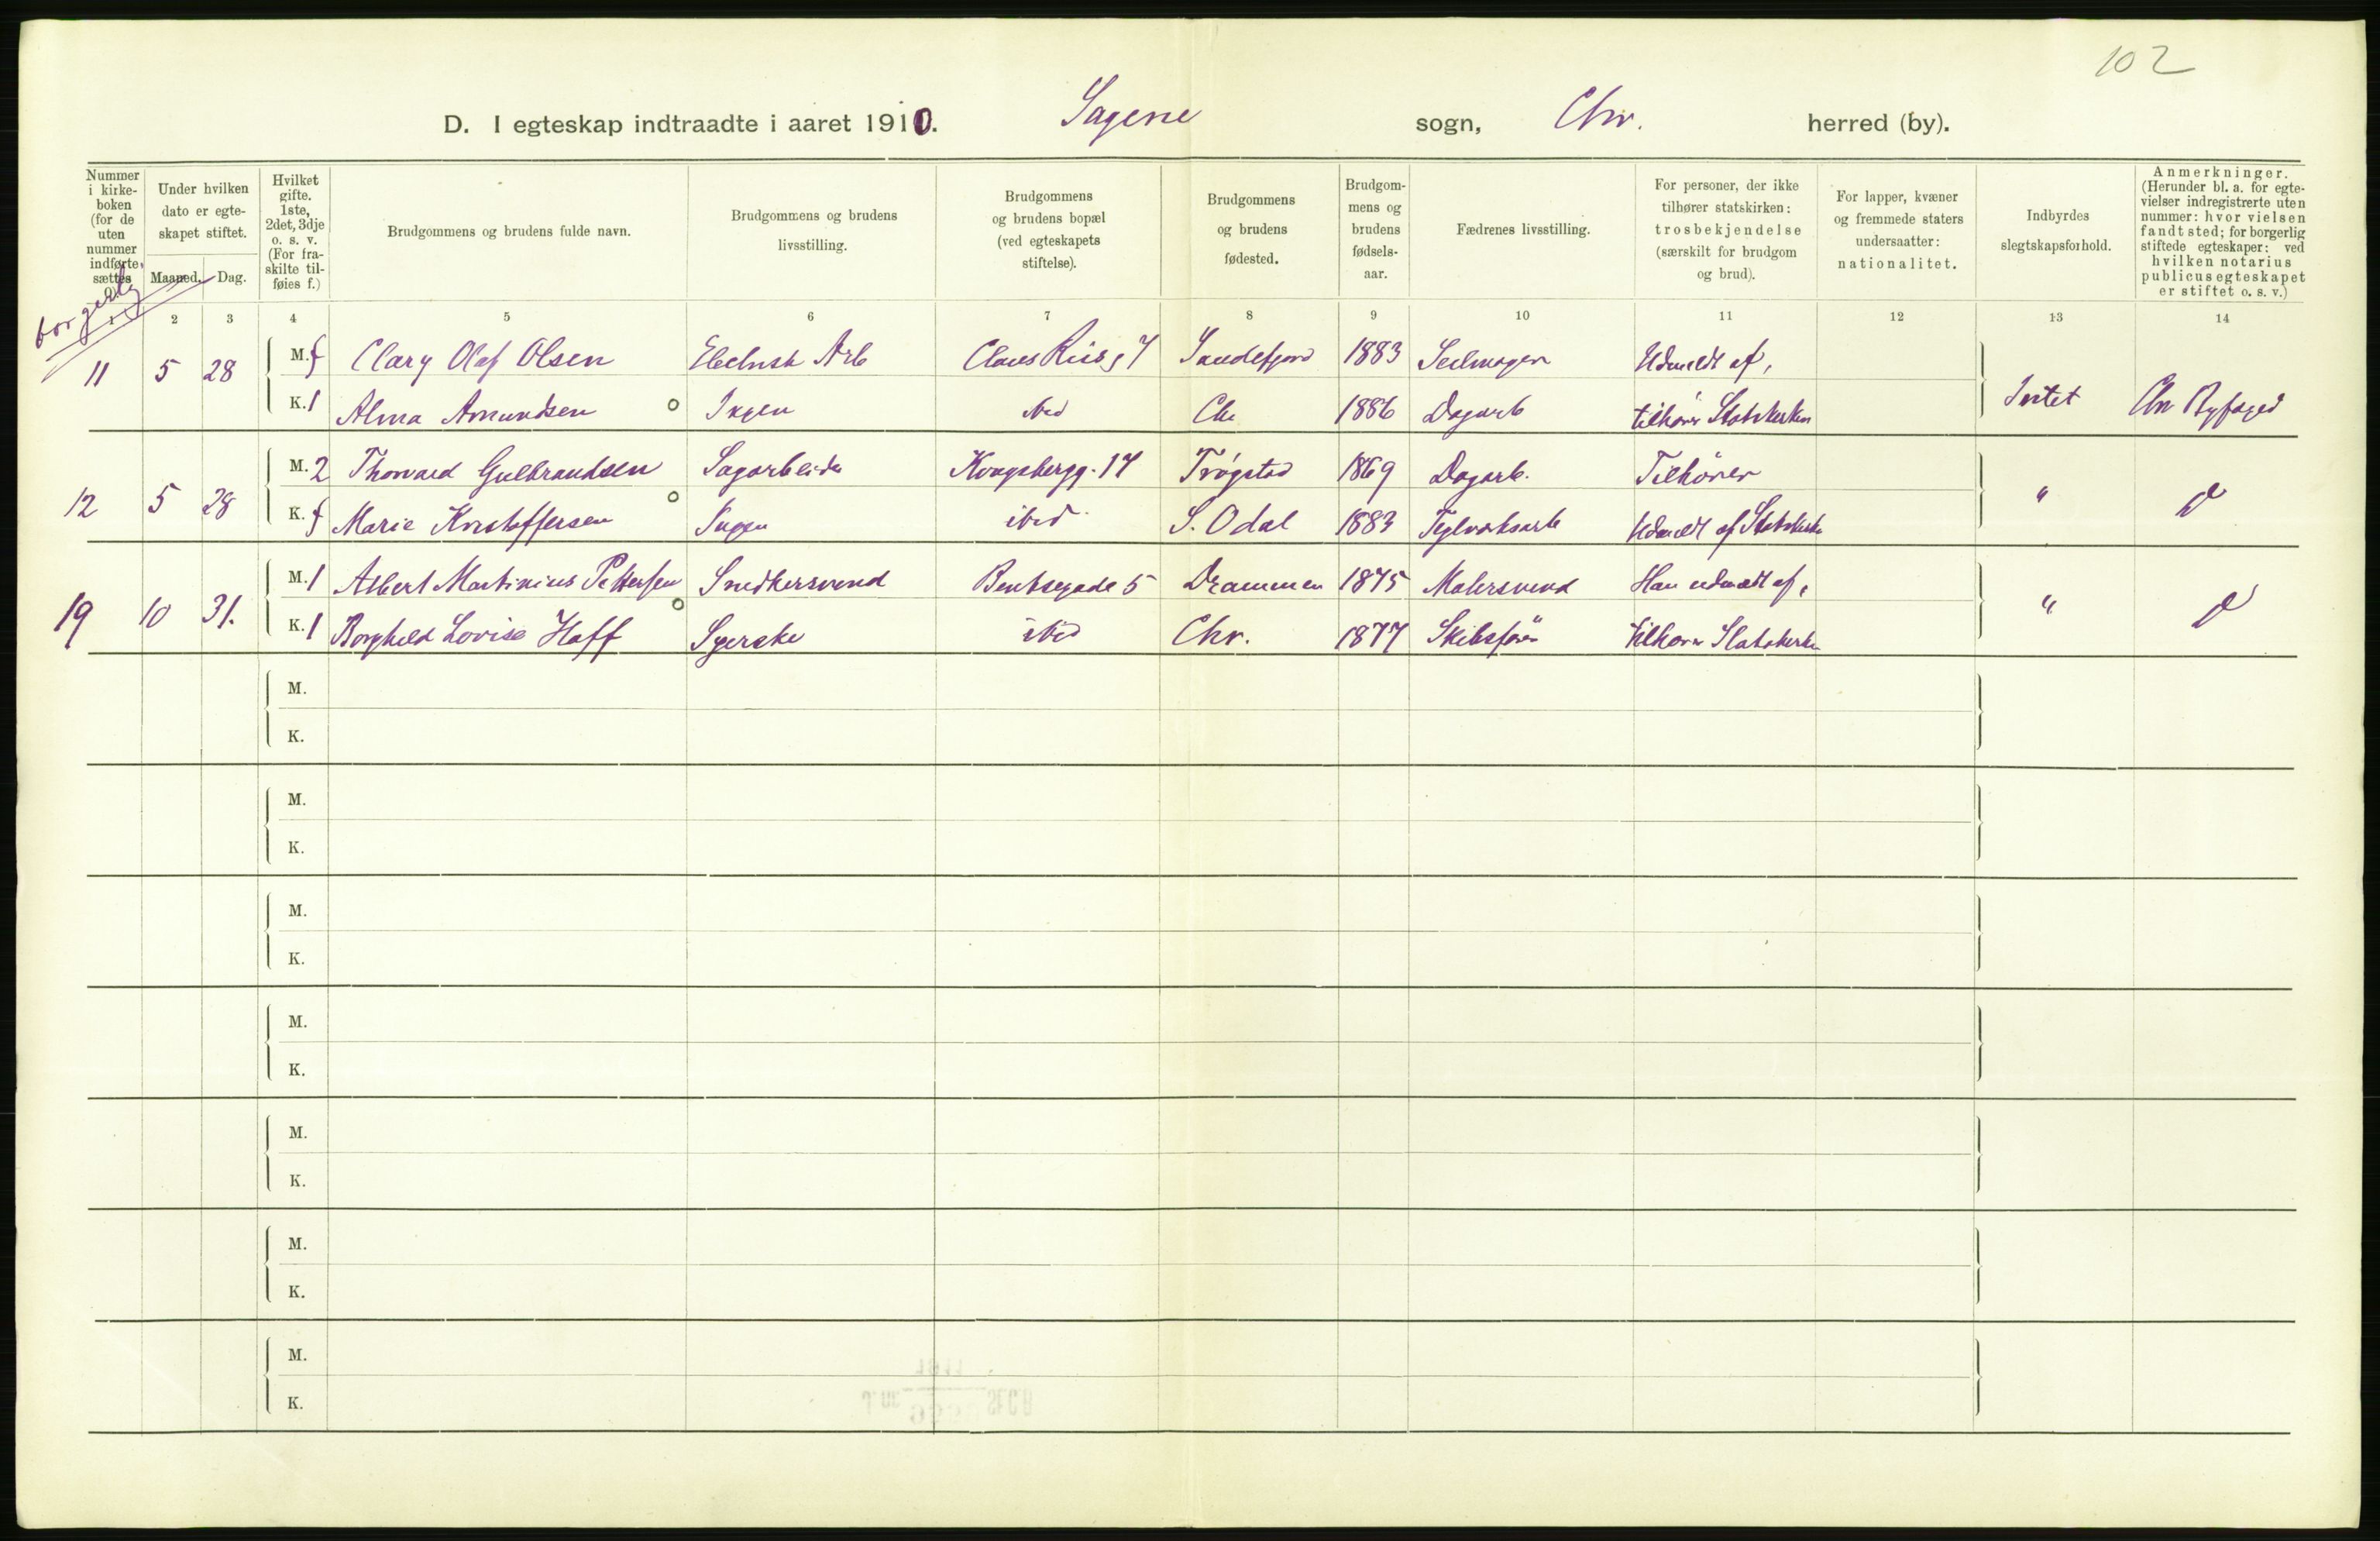 102
D. I egteskap indtraadte i aaret 1910. Sagene sogn, Chr. herred (by).
Nummer i kirke-boken (for de uten nummer indførte, sættes 0).
Under hvilken dato er egte-skapet stiftet.
Maaned. Dag.
Hvilket gifte. 1ste, 2det, 3dje o. s. v. (For fra-skilte til-føies f.)
Brudgommens og brudens fulde navn.
Brudgommens og brudens livsstilling.
Brudgommens og brudens bopæl (ved egteskapets stiftelse).
Brudgommens og brudens fødested.
Brudgom-mens og brudens fødsels-aar.
Fædrenes livsstilling.
For personer, der ikke tilhører statskirken: trosbekjendelse (særskilt for brudgom og brud).
For lapper, kvæner og fremmede staters undersaatter: nationalitet.
Indbyrdes slegtskapsforhold.
Anmerkninger. (Herunder bl. a. for egte-vielser indregistrerte uten nummer: hvor vielsen fandt sted; for borgerlig stiftede egteskaper: ved hvilken notarius publicus egteskapet er stiftet o. s. v.)
borgerlig
2 3 4 5 6 7 8 9 10 11 12 13 14
11 5 28
M. f Clary Olaf Olsen Elektrisk Arb Claus Riis g 7 Sandefjord 1883 Seilmager Udmeldt af,
K. 1 Alma Amundsen o Ingen ibid Chr 1886 Dagarb tilhører Statskirken
Intet Chr Byfoged
12 5 28
M. 2 Thorvald Gulbrandsen Sagarbeider Kongsbergg. 17 Trøgstad 1869 Dagarb. Tilhører
K. f Marie Kristoffersen o Ingen ibid S. Odal 1883 Teglverksarb Udmeldt af Statskirke
"
19 10 31.
M. 1 Albert Martinius Pettersen Snedkersvend Bentsegade 5 Drammen 1875 Malersvend Han udmeldt af,
K. 1 Borghild Lovise Hoff o Syerske ibid Chr. 1877 Skibsfører tilhører Statskirke
"
M.
K.
M.
K.
M.
K.
M.
K.
M.
K.
M.
K.
M.
K.